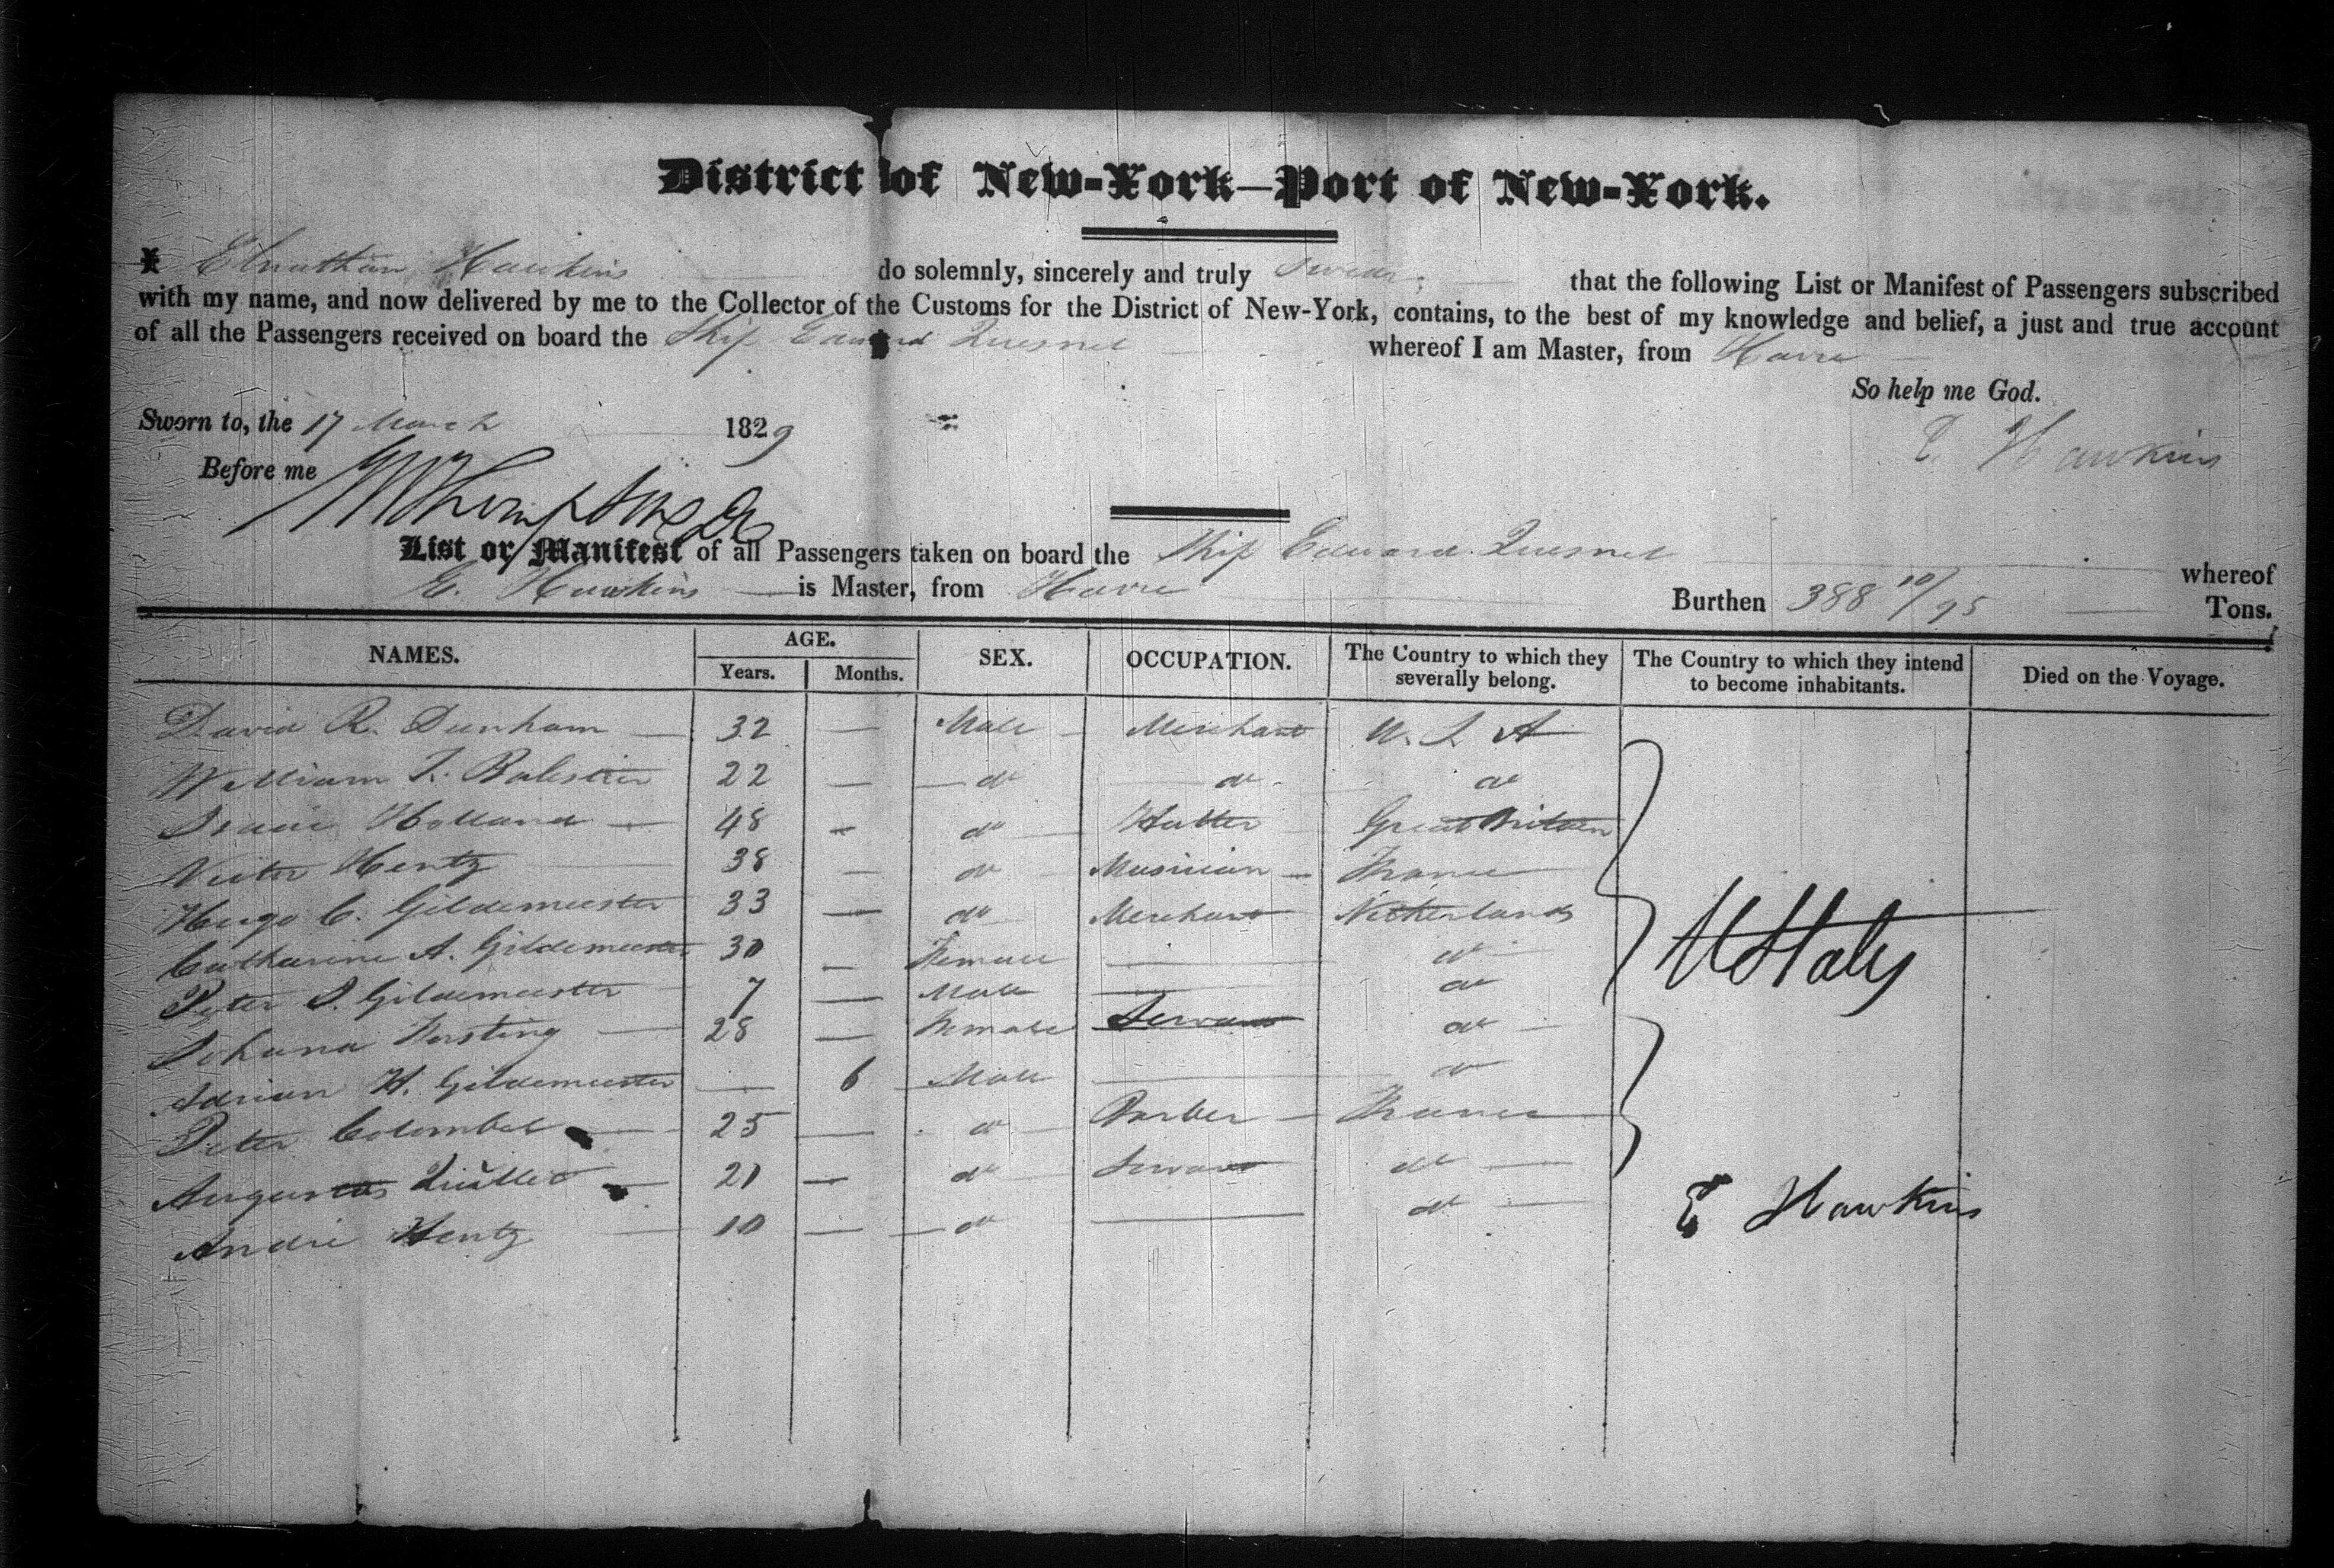 District of New-York—Port of New-York.
I Elnathan Hawkins do solemnly, sincerely and truly swear, that the following List or Manifest of Passengers subscribed
with my name, and now delivered by me to the Collector of the Customs for the District of New-York, contains, to the best of my knowledge and belief, a just and true account
of all the Passengers received on board the Ship Edward Quesnel whereof I am Master, from Havre
So help me God.
Sworn to, the 17 March 1829
E. Hawkins
Before me
List or Manifest of all Passengers taken on board the Ship Edward Quesnel whereof
E. Hawkins is Master, from Havre Burthen 388 10/95 Tons.
NAMES. AGE. Years. Months. SEX. OCCUPATION. The Country to which they severally belong. The Country to which they intend to become inhabitants. Died on the Voyage.
David R. Dunham — 32 — Male Merchant U. S. A
William T. Balestier 22 — do do do
Isaac Holland — 48 — do Hatter Great Britain
Victor Hentz 38 — do Musician — France
Hugo C. Gildemeester 33 — do Merchant Netherlands
Catharine A. Gildemeester 30 — Female — do
Peter S. Gildemeester 7 — Male — do
Johana Kersting — 28 — Female Servant do
Adrian H. Gildemeester — 6 Male — do
Peter Colombel — 25 — do Barber — France
Augustus — 21 — do Servant do
Andre Hentz 10 — do — do
U States
E Hawkins